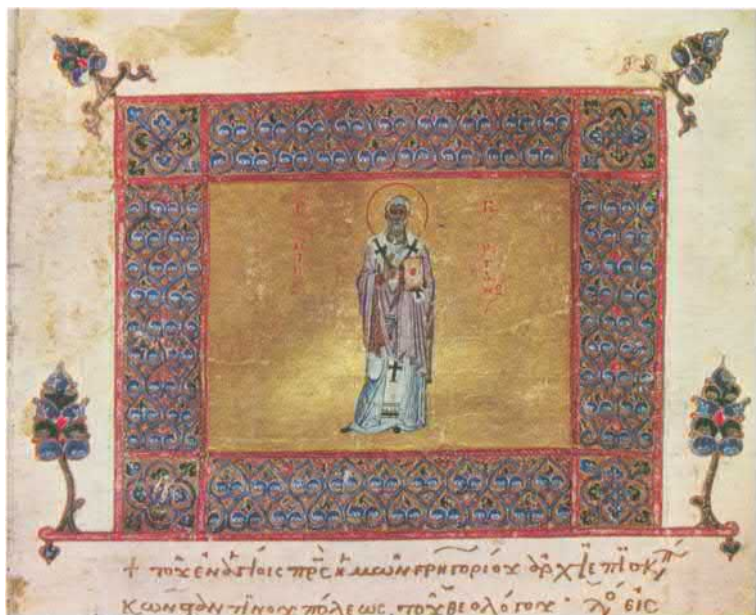 + τοῦ ἐν ἁγίοις πρς ἡμῶν γρηγορίου ἀρχιεπισκπ
κωνσταντίνου πόλεως τοῦ θεολόγου · λό εἰς